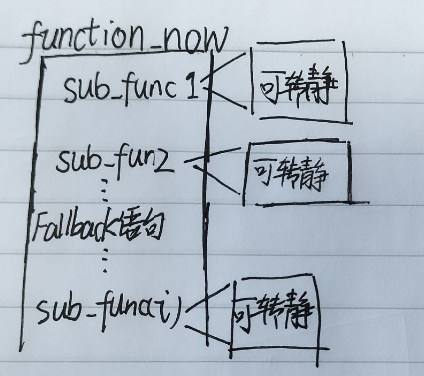 function_now
sub_func 1 可转静
sub_fun2 可转静
⋮
Fallback语句
⋮
sub_func(i) 可转静